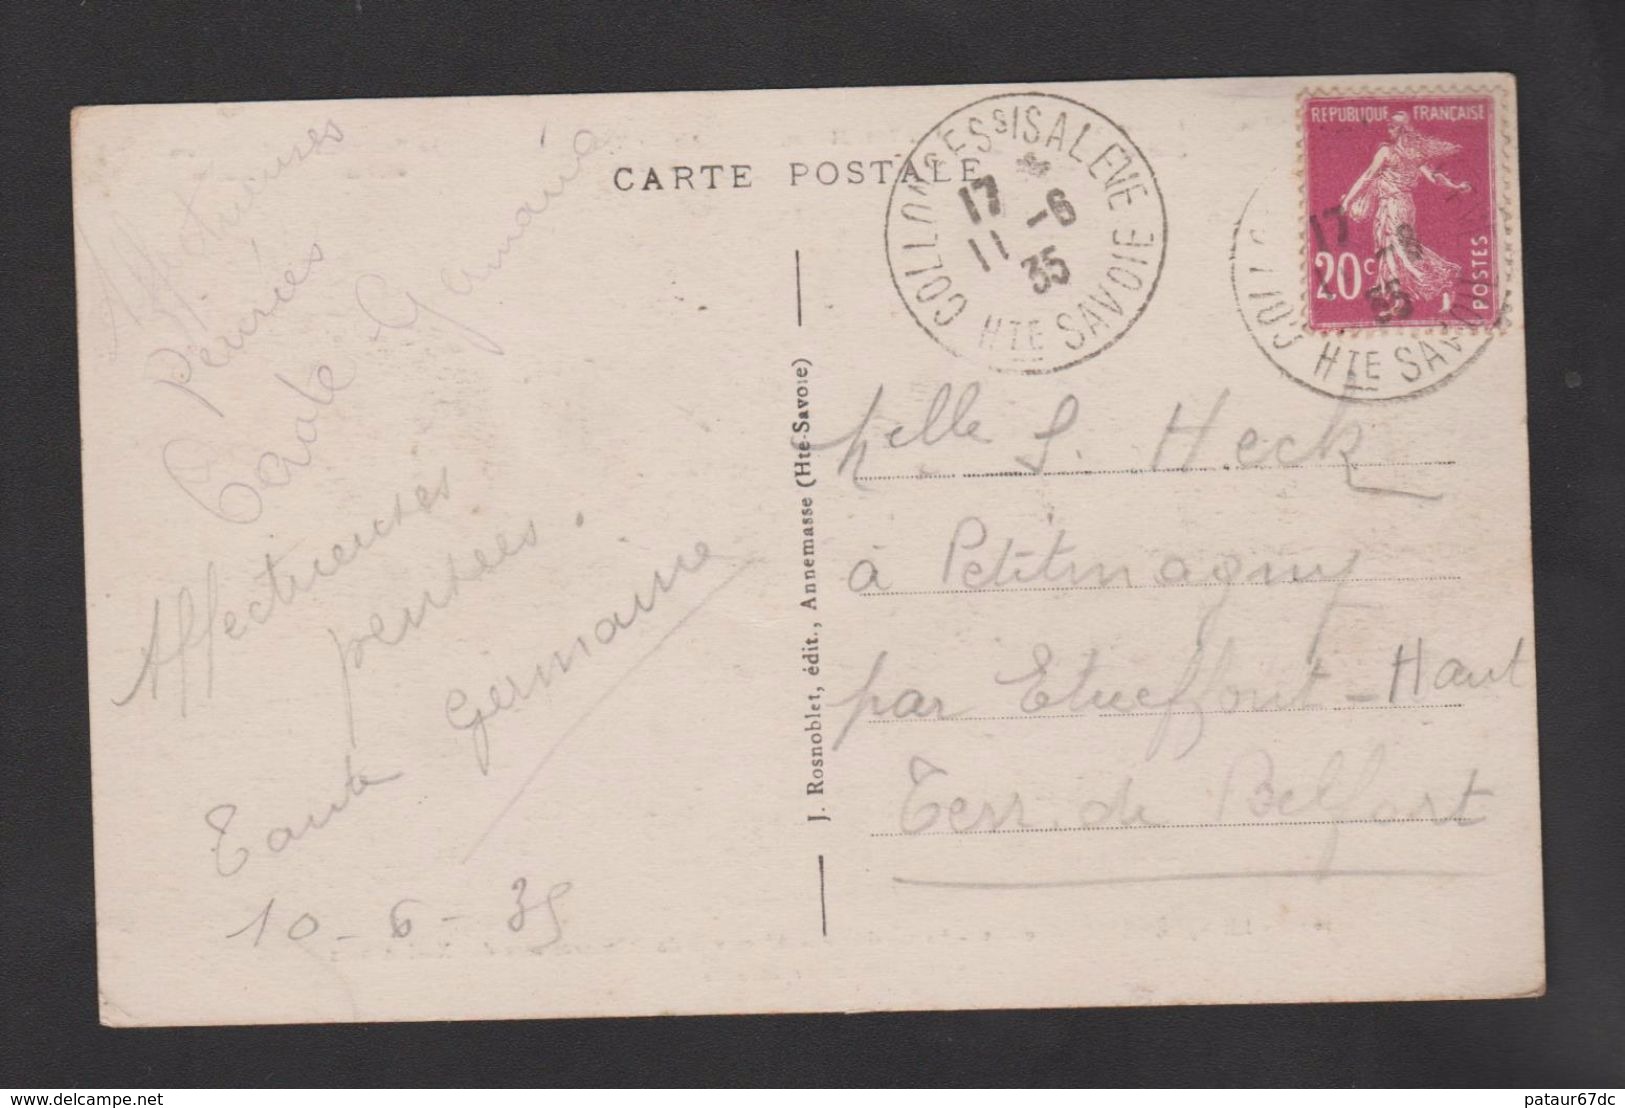 CARTE POSTALE
COLLONGES S/SALEVE
17
11 -6
35
HTE SAVOIE
REPUBLIQUE FRANÇAISE
20c
POSTES
17
-8
35
HTE SAVOIE
Affectueuses
Pensées
Tante Germaine
Affectueuses
pensées.
Tante Germaine
10-6-35
J. Rosnoblet, édit., Annemasse (Hte-Savoie)
Melle S. Heck
à Petitmagny
par Etueffont-Haut
Terr. de Belfort
www.delcampe.net
pataur67dc